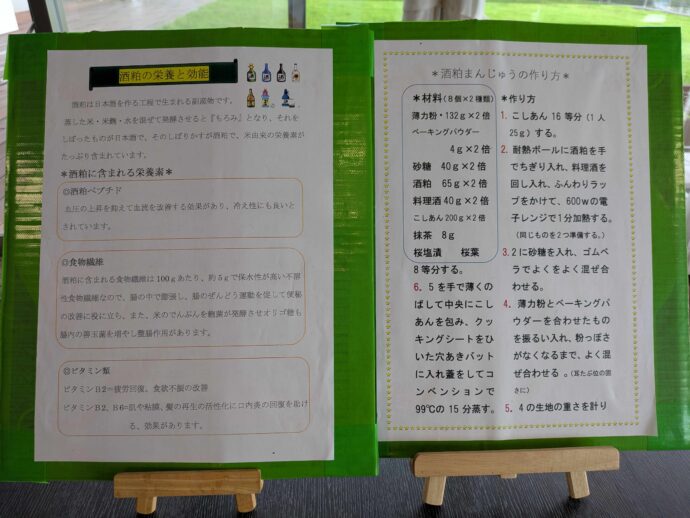 酒粕の栄養と効能
酒粕は日本酒を作る工程で生まれる副産物です。
蒸した米・米麹・水を混ぜて発酵させると『もろみ』となり、それを
しぼったものが日本酒で、そのしぼりかすが酒粕で、米由来の栄養素が
たっぷり含まれています。
＊酒粕に含まれる栄養素＊
◎酒粕ペプチド
血圧の上昇を抑えて血流を改善する効果があり、冷え性にも良いと
されています。
◎食物繊維
酒粕に含まれる食物繊維は100gあたり、約5gで保水性が高い不溶
性食物繊維なので、腸の中で膨張し、腸のぜんどう運動を促して便秘
の改善に役に立ち、また、米のでんぷんを麹菌が発酵させオリゴ糖も
腸内の善玉菌を増やし整腸作用があります。
◎ビタミン類
ビタミンB2=疲労回復、食欲不振の改善
ビタミンB2、B6=肌や粘膜、髪の再生の活性化に口内炎の回復を助け
る、効果があります。
＊酒粕まんじゅうの作り方＊
＊材料(8個×2種類)
薄力粉・132g×2倍
ベーキングパウダー
4g×2倍
砂糖 40g×2倍
酒粕 65g×2倍
料理酒40g×2倍
こしあん200g×2倍
抹茶 8g
桜塩漬 桜葉
＊作り方
1. こしあん16等分(1人
25g)する。
2. 耐熱ボールに酒粕を手
でちぎり入れ、料理酒を
回し入れ、ふんわりラッ
プをかけて、600wの電
子レンジで1分加熱する。
(同じものを2つ準備する。)
3. 2に砂糖を入れ、ゴムベ
ラでよくをよく混ぜ合
わせる。
4. 薄力粉とベーキングパ
ウダーを合わせたもの
を振るい入れ、粉っぽさ
がなくなるまで、よく混
ぜ合わせる。(耳たぶ位の固
さに)
5. 4の生地の重さを計り
8等分する。
6. 5を手で薄くの
ばして中央にこし
あんを包み、クッ
キングシートをひ
いた穴あきバット
に入れ蓋をしてコ
ンベンションで
99℃の15分蒸す。